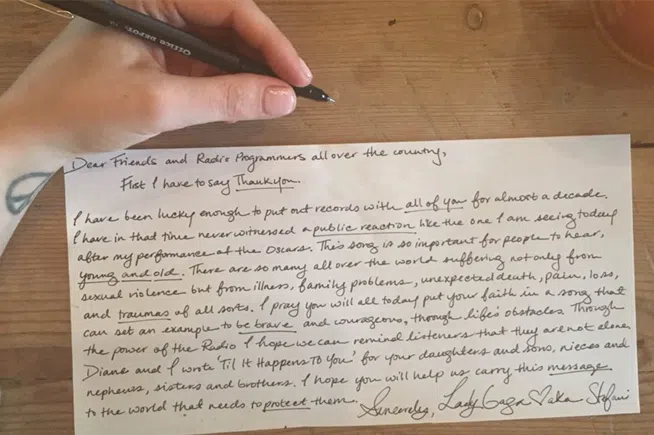 OFFICE DEPOT
Dear Friends and Radio Programmers all over the country,
First I have to say Thank you.
I have been lucky enough to put out records with all of you for almost a decade.
I have in that time never witnessed a public reaction like the one I am seeing today
after my performance at the Oscars. This song is so important for people to hear,
young and old. There are so many all over the world suffering not only from
sexual violence but from illness, family problems, unexpected death, pain, loss,
and traumas of all sorts. I pray you will all today put your faith in a song that
can set an example to be brave and courageous, though life's obstacles. Through
the power of the Radio I hope we can remind listeners that they are not alone.
Diane and I wrote 'Til It Happens To You' for your daughters and sons, nieces and
nephews, sisters and brothers. I hope you will help us carry this message
to the world that needs to protect them.
Sincerely, Lady Gaga ♡ aka Stefani